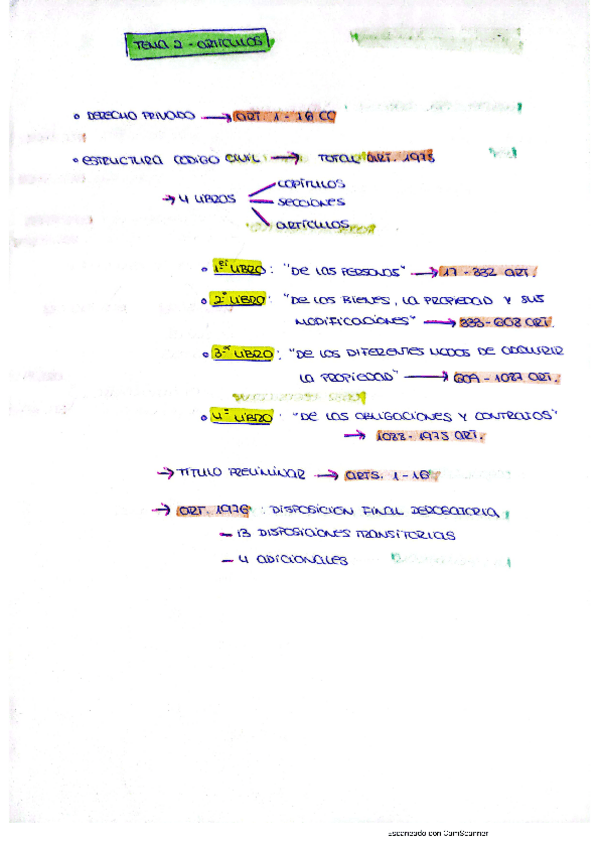 TEMA 2 - ARTÍCULOS
• DERECHO PRIVADO → ART. 1 - 16 CC
• ESTRUCTURA CÓDIGO CIVIL → TOTAL ART. 1975
→ 4 LIBROS
CAPÍTULOS
SECCIONES
ARTÍCULOS
• 1er LIBRO: "DE LAS PERSONAS" → 17 - 332 ART.
• 2º LIBRO: "DE LOS BIENES, LA PROPIEDAD Y SUS
MODIFICACIONES" → 333 - 608 ART.
• 3er LIBRO: "DE LOS DIFERENTES MODOS DE ADQUIRIR
LA PROPIEDAD" → 609 - 1087 ART.
• 4º LIBRO: "DE LAS OBLIGACIONES Y CONTRATOS"
→ 1088 - 1975 ART.
→ TITULO PRELIMINAR → ARTS. 1 - 16
→ ART. 1976: DISPOSICIÓN FINAL DEROGATORIA
- 13 DISPOSICIONES TRANSITORIAS
- 4 ADICIONALES
Escaneado con CamScanner